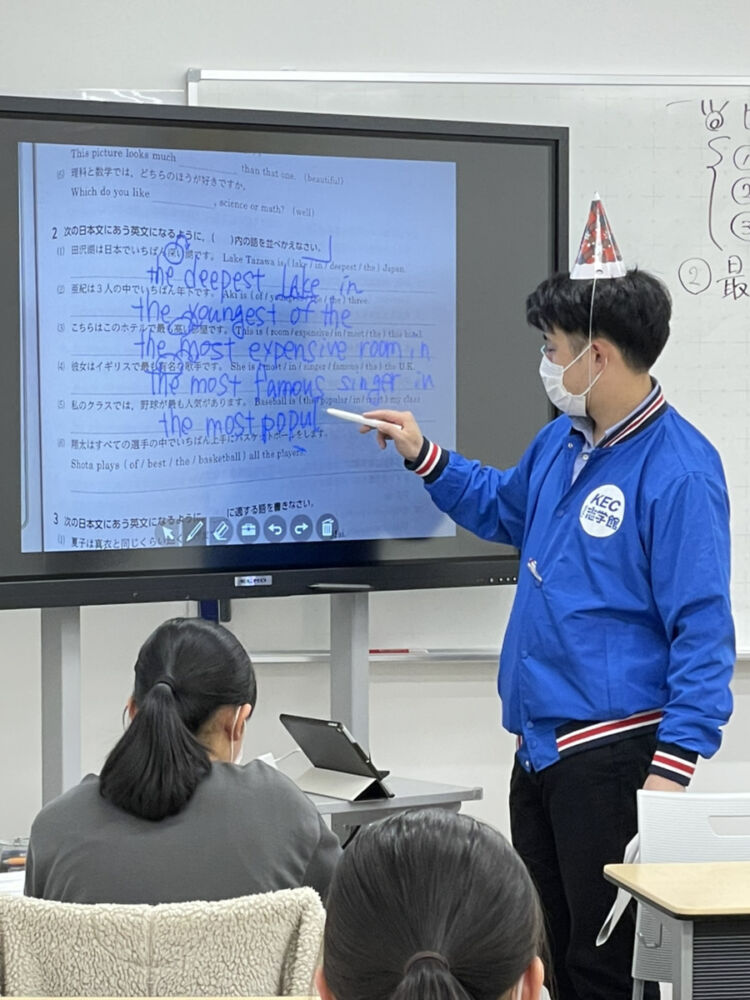 This picture looks much ______ than that one. (beautiful)
(6) 理科と数学では、どちらのほうが好きですか。
Which do you like ______, science or math? (well)
2 次の日本文にあう英文になるように、( )内の語を並べかえなさい。
(1) 田沢湖は日本でいちばん深い湖です。 Lake Tazawa is (lake / in / deepest / the) Japan.
the deepest lake in
(2) 亜紀は3人の中でいちばん年下です。 Aki is (of / the) three.
the youngest of the
(3) こちらはこのホテルで最も高い部屋です。 This is (room / expensive / in / most / the) this hotel.
the most expensive room in
(4) 彼女はイギリスで最も有名な歌手です。 She is (most / in / singer / famous / the) the U.K.
the most famous singer in
(5) 私のクラスでは、野球が最も人気があります。 Baseball is (the / popular / in / most) my class.
the most popul
(6) 翔太はすべての選手の中でいちばん上手にバスケットボールをします。
Shota plays (of / best / the / basketball) all the players.
3 次の日本文にあう英文になるように ______ に適する語を書きなさい。
(1) 夏子は真衣と同じくらい
KEC
志学館
①
②
③
② 最